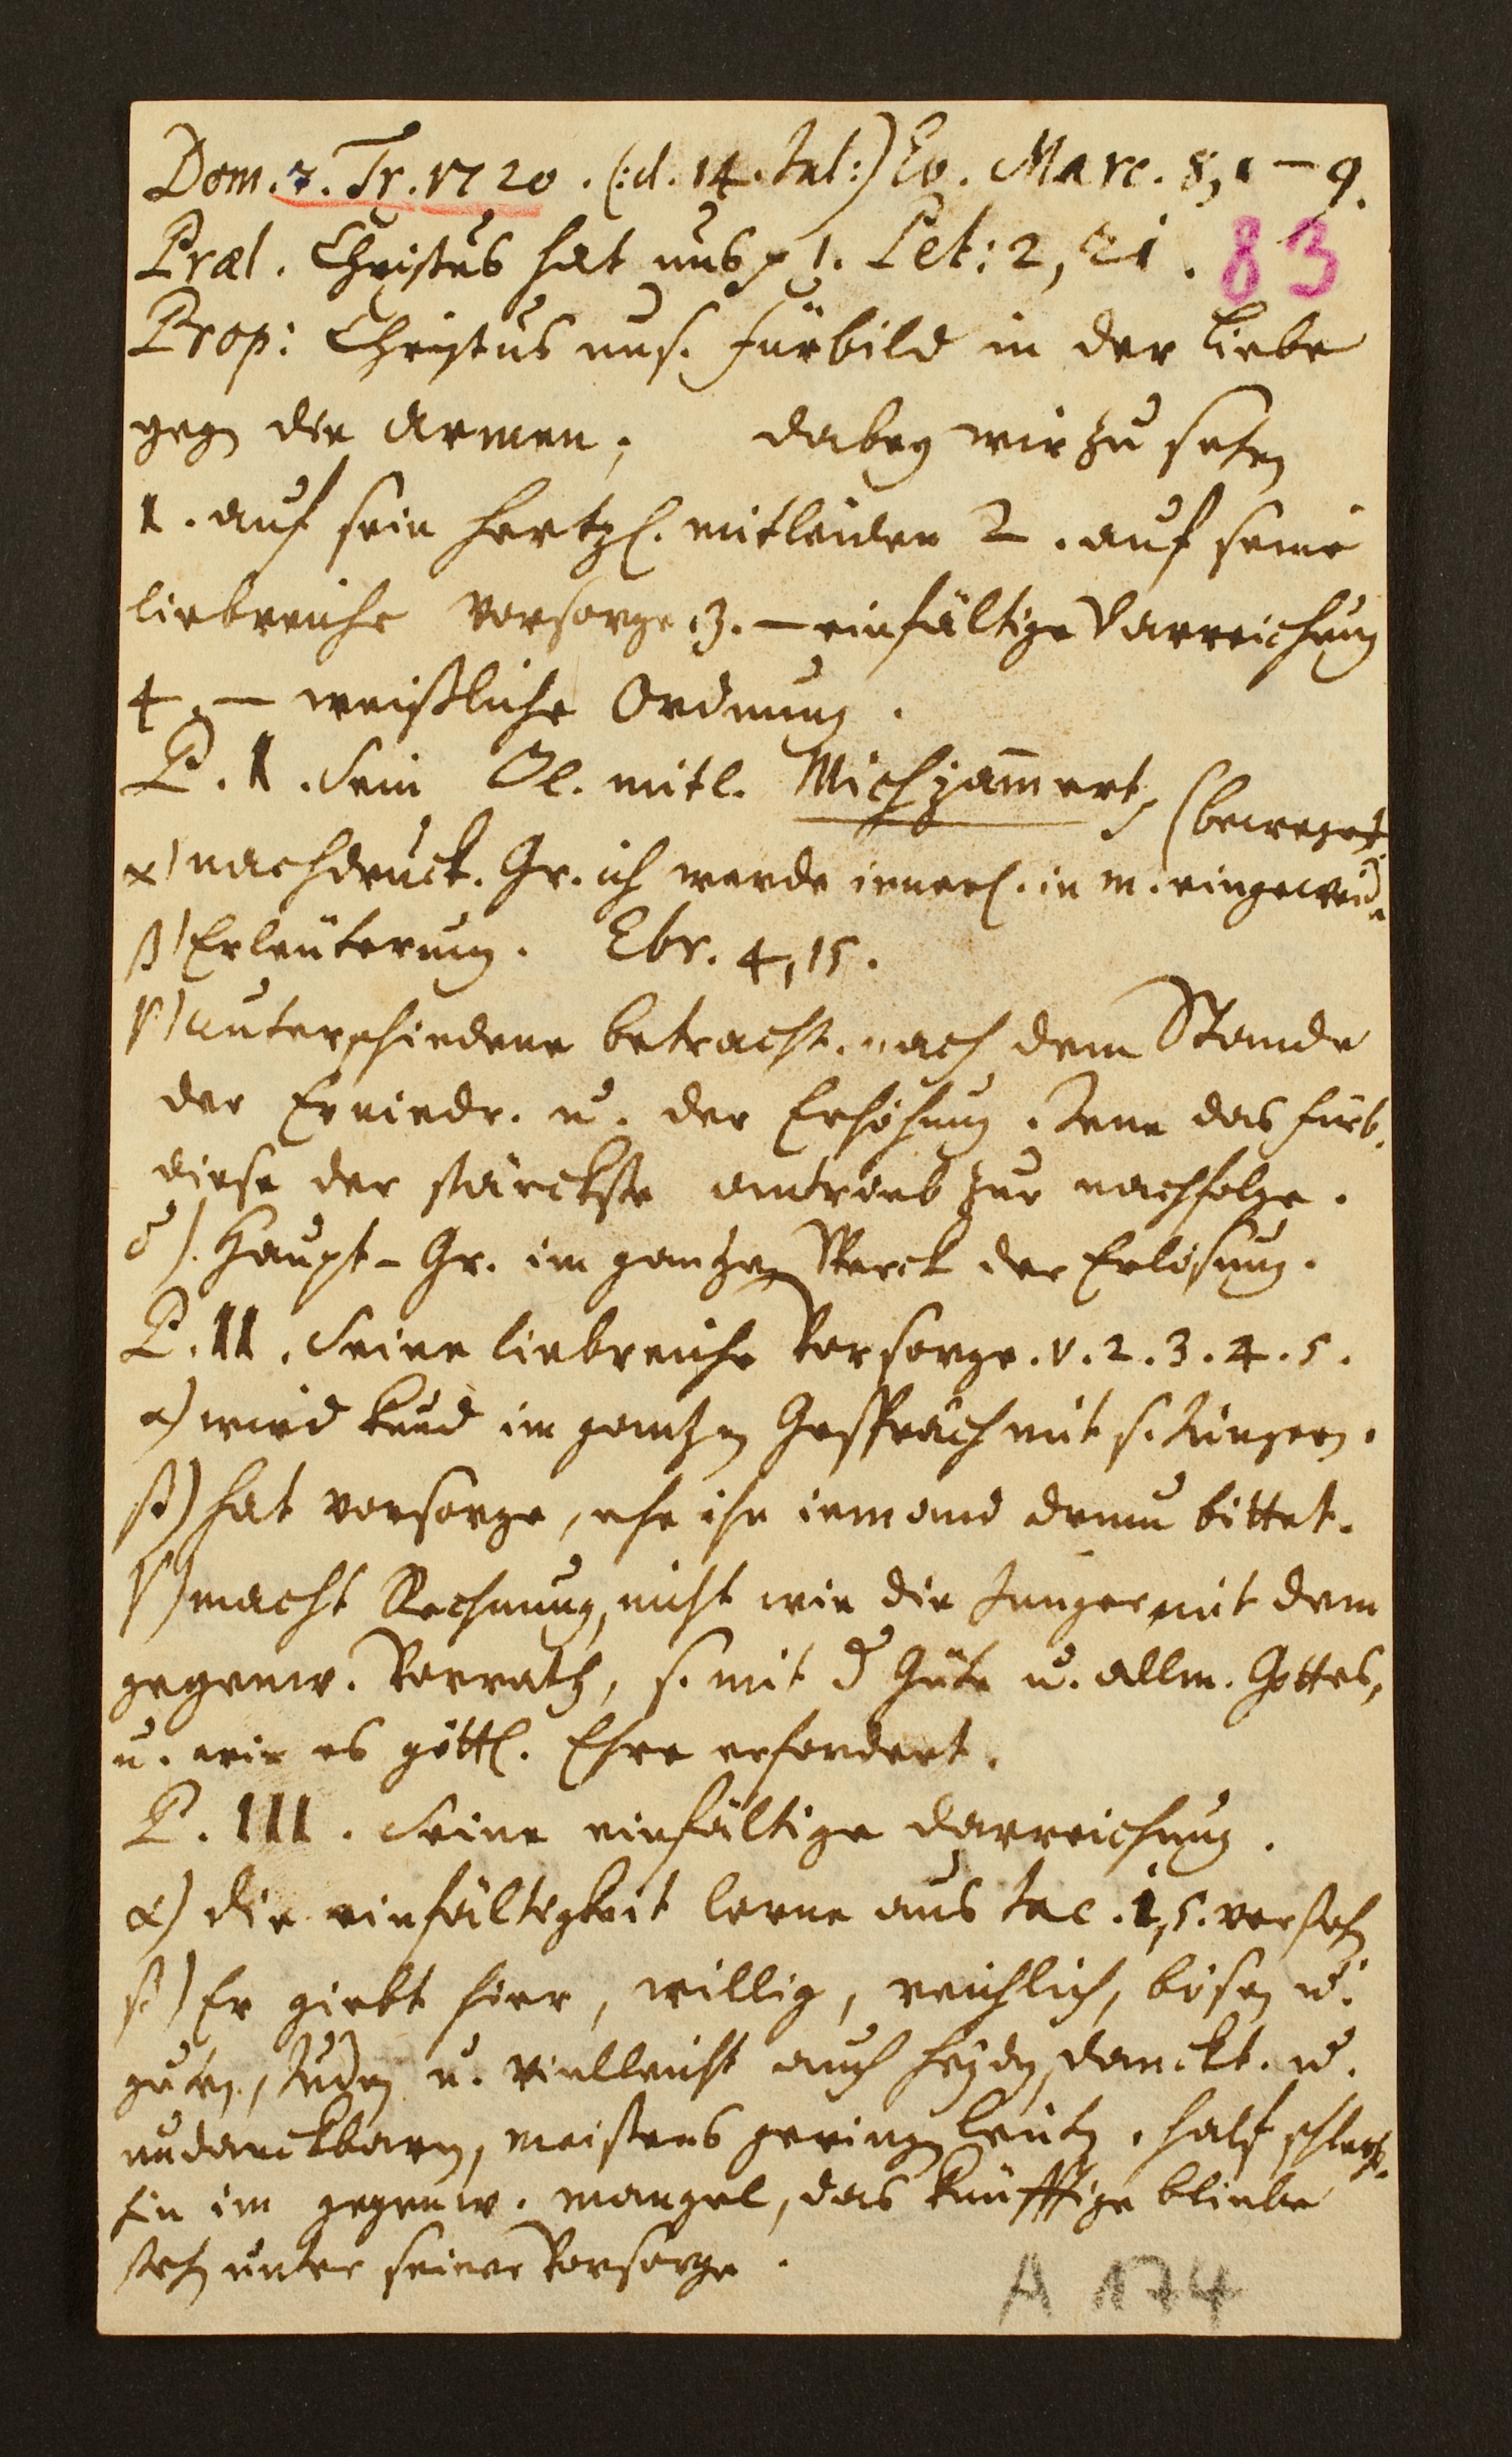 Dom. 7. Tr. 1720. (:d. 14. Jul:) Ev. Marc. 8,1-9.
Præl. Christus hat uns p 1. Pet: 2, 21. 83
Prop: Christus uns. Fürbild in der Liebe
gegen die Armen; dabey wir zu sehen
1. auf sein hertzl. mitleiden 2. auf seine
liebreiche Vorsorge. 3. — einfältige Darreichung
4. — weißliche Ordnung.
P. I. Sein mitl. Mich jam̄ert, (beweget
α) nachdruck. Gr. ich werde innerl. in m. eingeweid.
β) Erleuterung. Ebr. 4, 15.
γ) unterschiedene betracht. nach dem Stande
der Erniedr. u. der Erhöhung. Jene das fürb.
diese der stärckste antrieb zur nachfolge.
δ). Haupt-Gr. im gantzen Werck der Erlösung.
P. II. Seine liebreiche Vorsorge. v. 2. 3. 4. 5.
α) wird kund im gantzen Gespräch mit s. Jüngern.
β) hat vorsorge, ehe ihn iemand drum bittet.
γ) macht Rechnung, nicht wie die Jünger mit dem
gegenw. Vorrath, s. mit d Güte u. allm. Gottes,
u. wie es göttl. Ehre erfordert.
P. III. Seine einfältige darreichung.
α) die einfältigkeit lerne aus Jac. 1,5. verstehen
β) Er giebt hier, willig, reichlich, bösen u.
guten, Juden u. vielleicht auch heyden, danckb. u.
undanckbaren, meistens geringen leuten. half schlech-
hin im gegenw. mangel, das künfftige bliebe
stehen unter seiner Vorsorge.
A 174